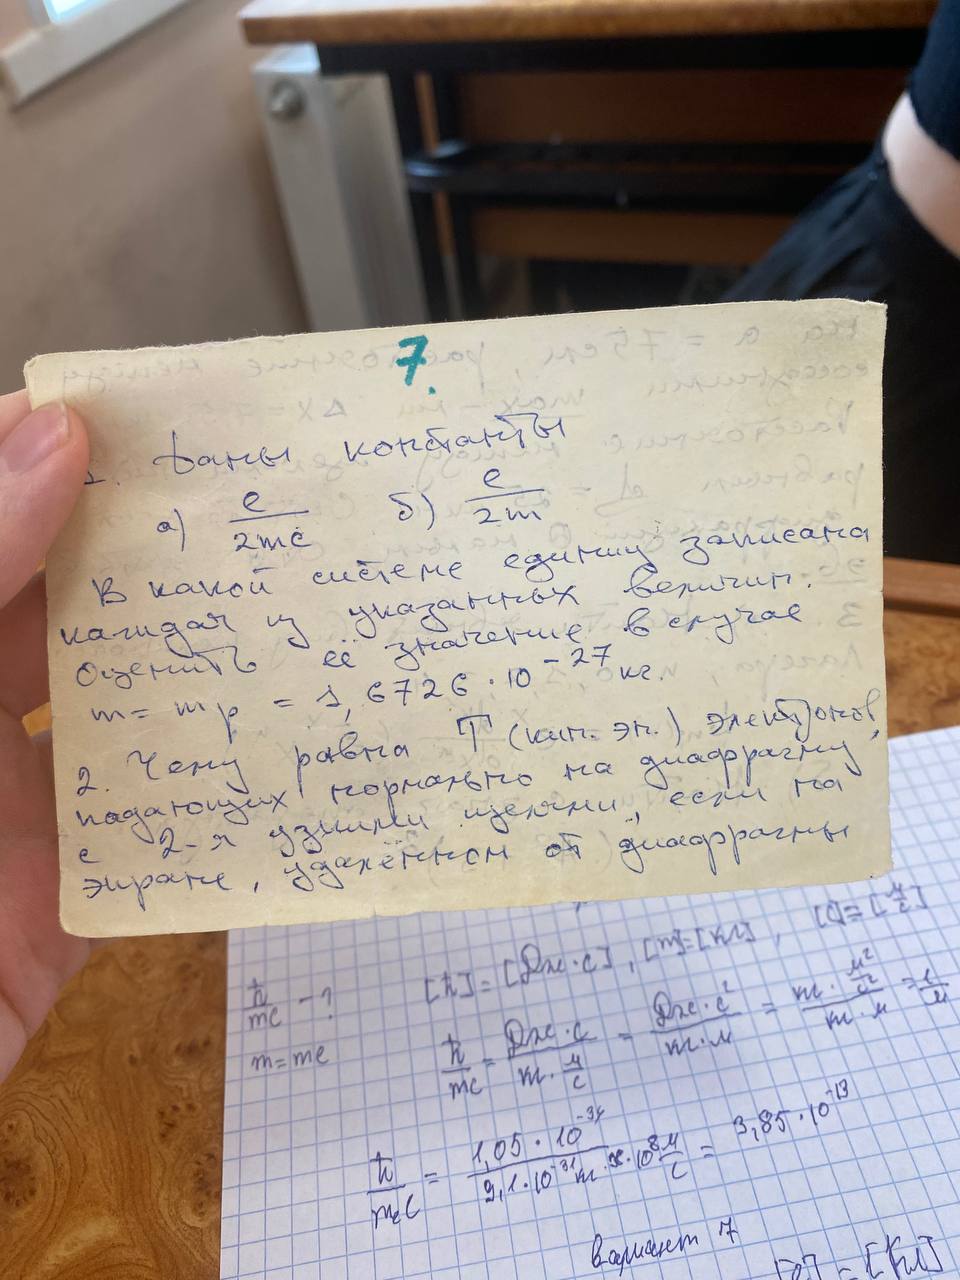 7.
1. Даны константы
а) e/2mc б) e/2m
В какой системе единиц записана
каждая из указанных величин.
Оценить её значение в случае
m = m_p = 1,6726 · 10^-27 кг.
2. Чему равна T (кин. эн.) электронов,
падающих нормально на диафрагму
с 2-я узкими щелями, если на
экране, удалённом от диафрагмы
ħ/mc - ? [ħ] = [Дж·с], [m]=[кг], [c]=[м/с]
m = me ħ/mc = Дж·с/кг·м/с = Дж·с²/кг·м = кг·м²/с²/кг·м =
ħ/m_ec = 1,05·10^-34/9,1·10^-31кг·3·10^8м/с = 3,85·10^-13
Вариант 7
= [Кл]